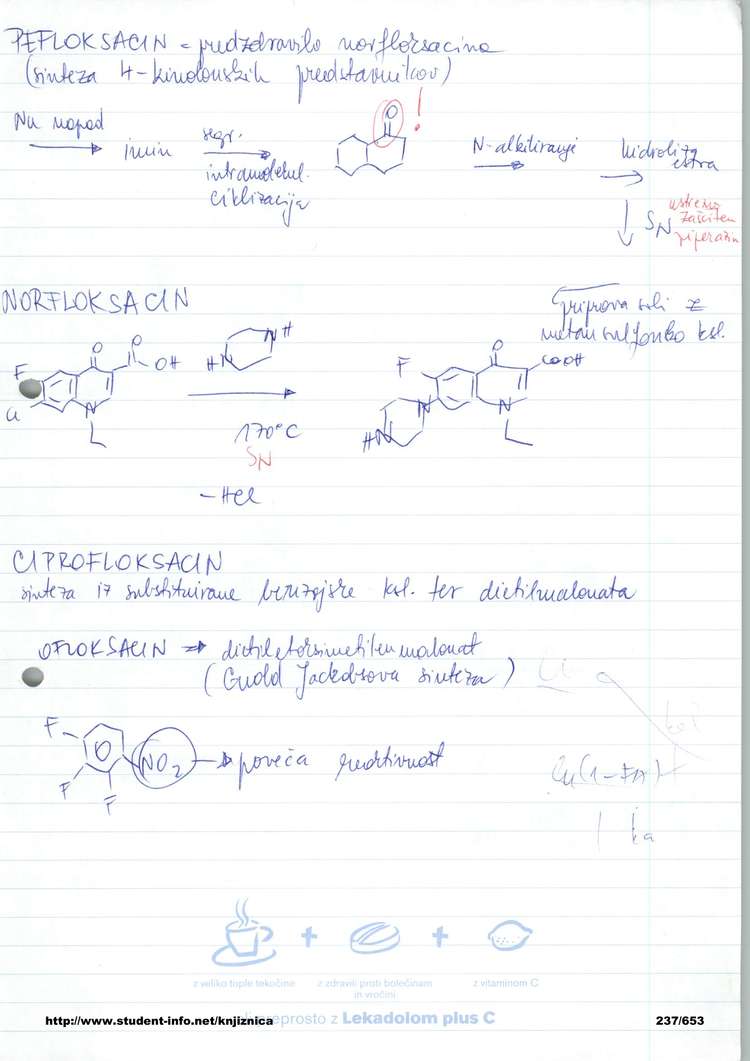 PEFLOKSACIN = predzdravilo norfloksacina
(sinteza 4-kinolonskih predstavnikov)
Nu napad
imin
segr.
intramolekul.
ciklizacija
O
!
N-alkiliranje
hidroliza
estra
SN
ustrezno
zaščiten
piperazin
NORFLOKSACIN
priprava soli z
metansulfonsko ksl.
F
O
O
OH
Cl
N
HN
NH
170°C
SN
-HCl
F
O
COOH
N
N
HN
CIPROFLOKSACIN
sinteza iz substituirane benzojske ksl. ter dietilmalonata
OFLOKSACIN → dietiletoksimetilenmalonat
(Guold Jackobsova sinteza)
F
F
F
NO2 → poveča reaktivnost
z veliko tople tekočine
z zdravili proti bolečinam
in vročini
z vitaminom C
http://www.student-info.net/knjiznica
preprosto z Lekadolom plus C
237/653